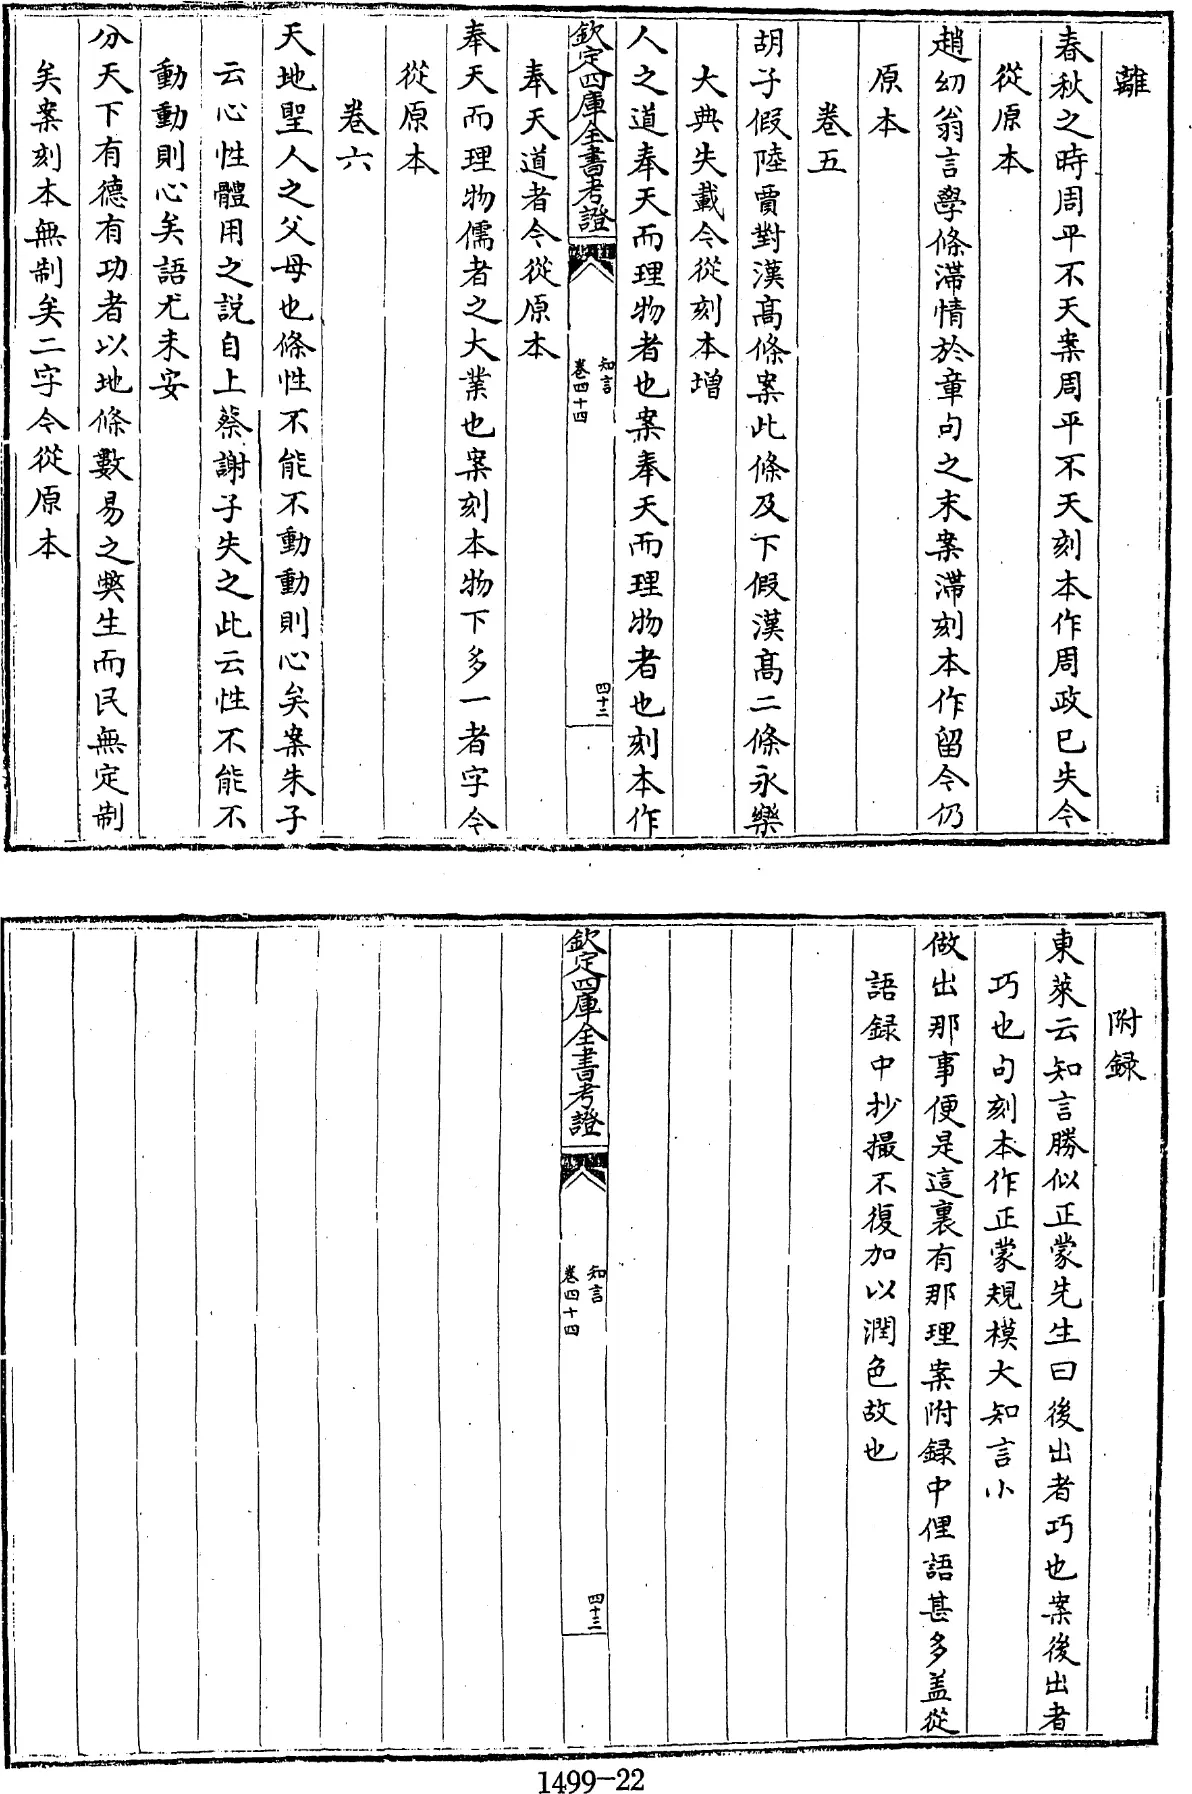 離
春秋之時周平不天案周平不天刻本作周政已失今
從原本
趙幼翁言學條滯情於章句之末案滯刻本作留今仍
原本
卷五
胡子假陸賈對漢高條案此條及下假漢高二條永樂
大典失載今從刻本增
人之道奉天而理物者也案奉天而理物者也刻本作
欽定四庫全書考證
知言
卷四十四
四十二
奉天道者今從原本
奉天而理物儒者之大業也案刻本物下多一者字今
從原本
卷六
天地聖人之父母也條性不能不動動則心矣案朱子
云心性體用之説自上蔡謝子失之此云性不能不
動動則心矣語尤未安
分天下有德有功者以地條數易之獘生而民無定制
矣案刻本無制矣二字今從原本
附録
東萊云知言勝似正蒙先生曰後出者巧也案後出者
巧也句刻本作正蒙規模大知言小
做出那事便是這裏有那理案附録中俚語甚多盖從
語録中抄撮不復加以潤色故也
欽定四庫全書考證
知言
卷四十四
四十三
1499-22